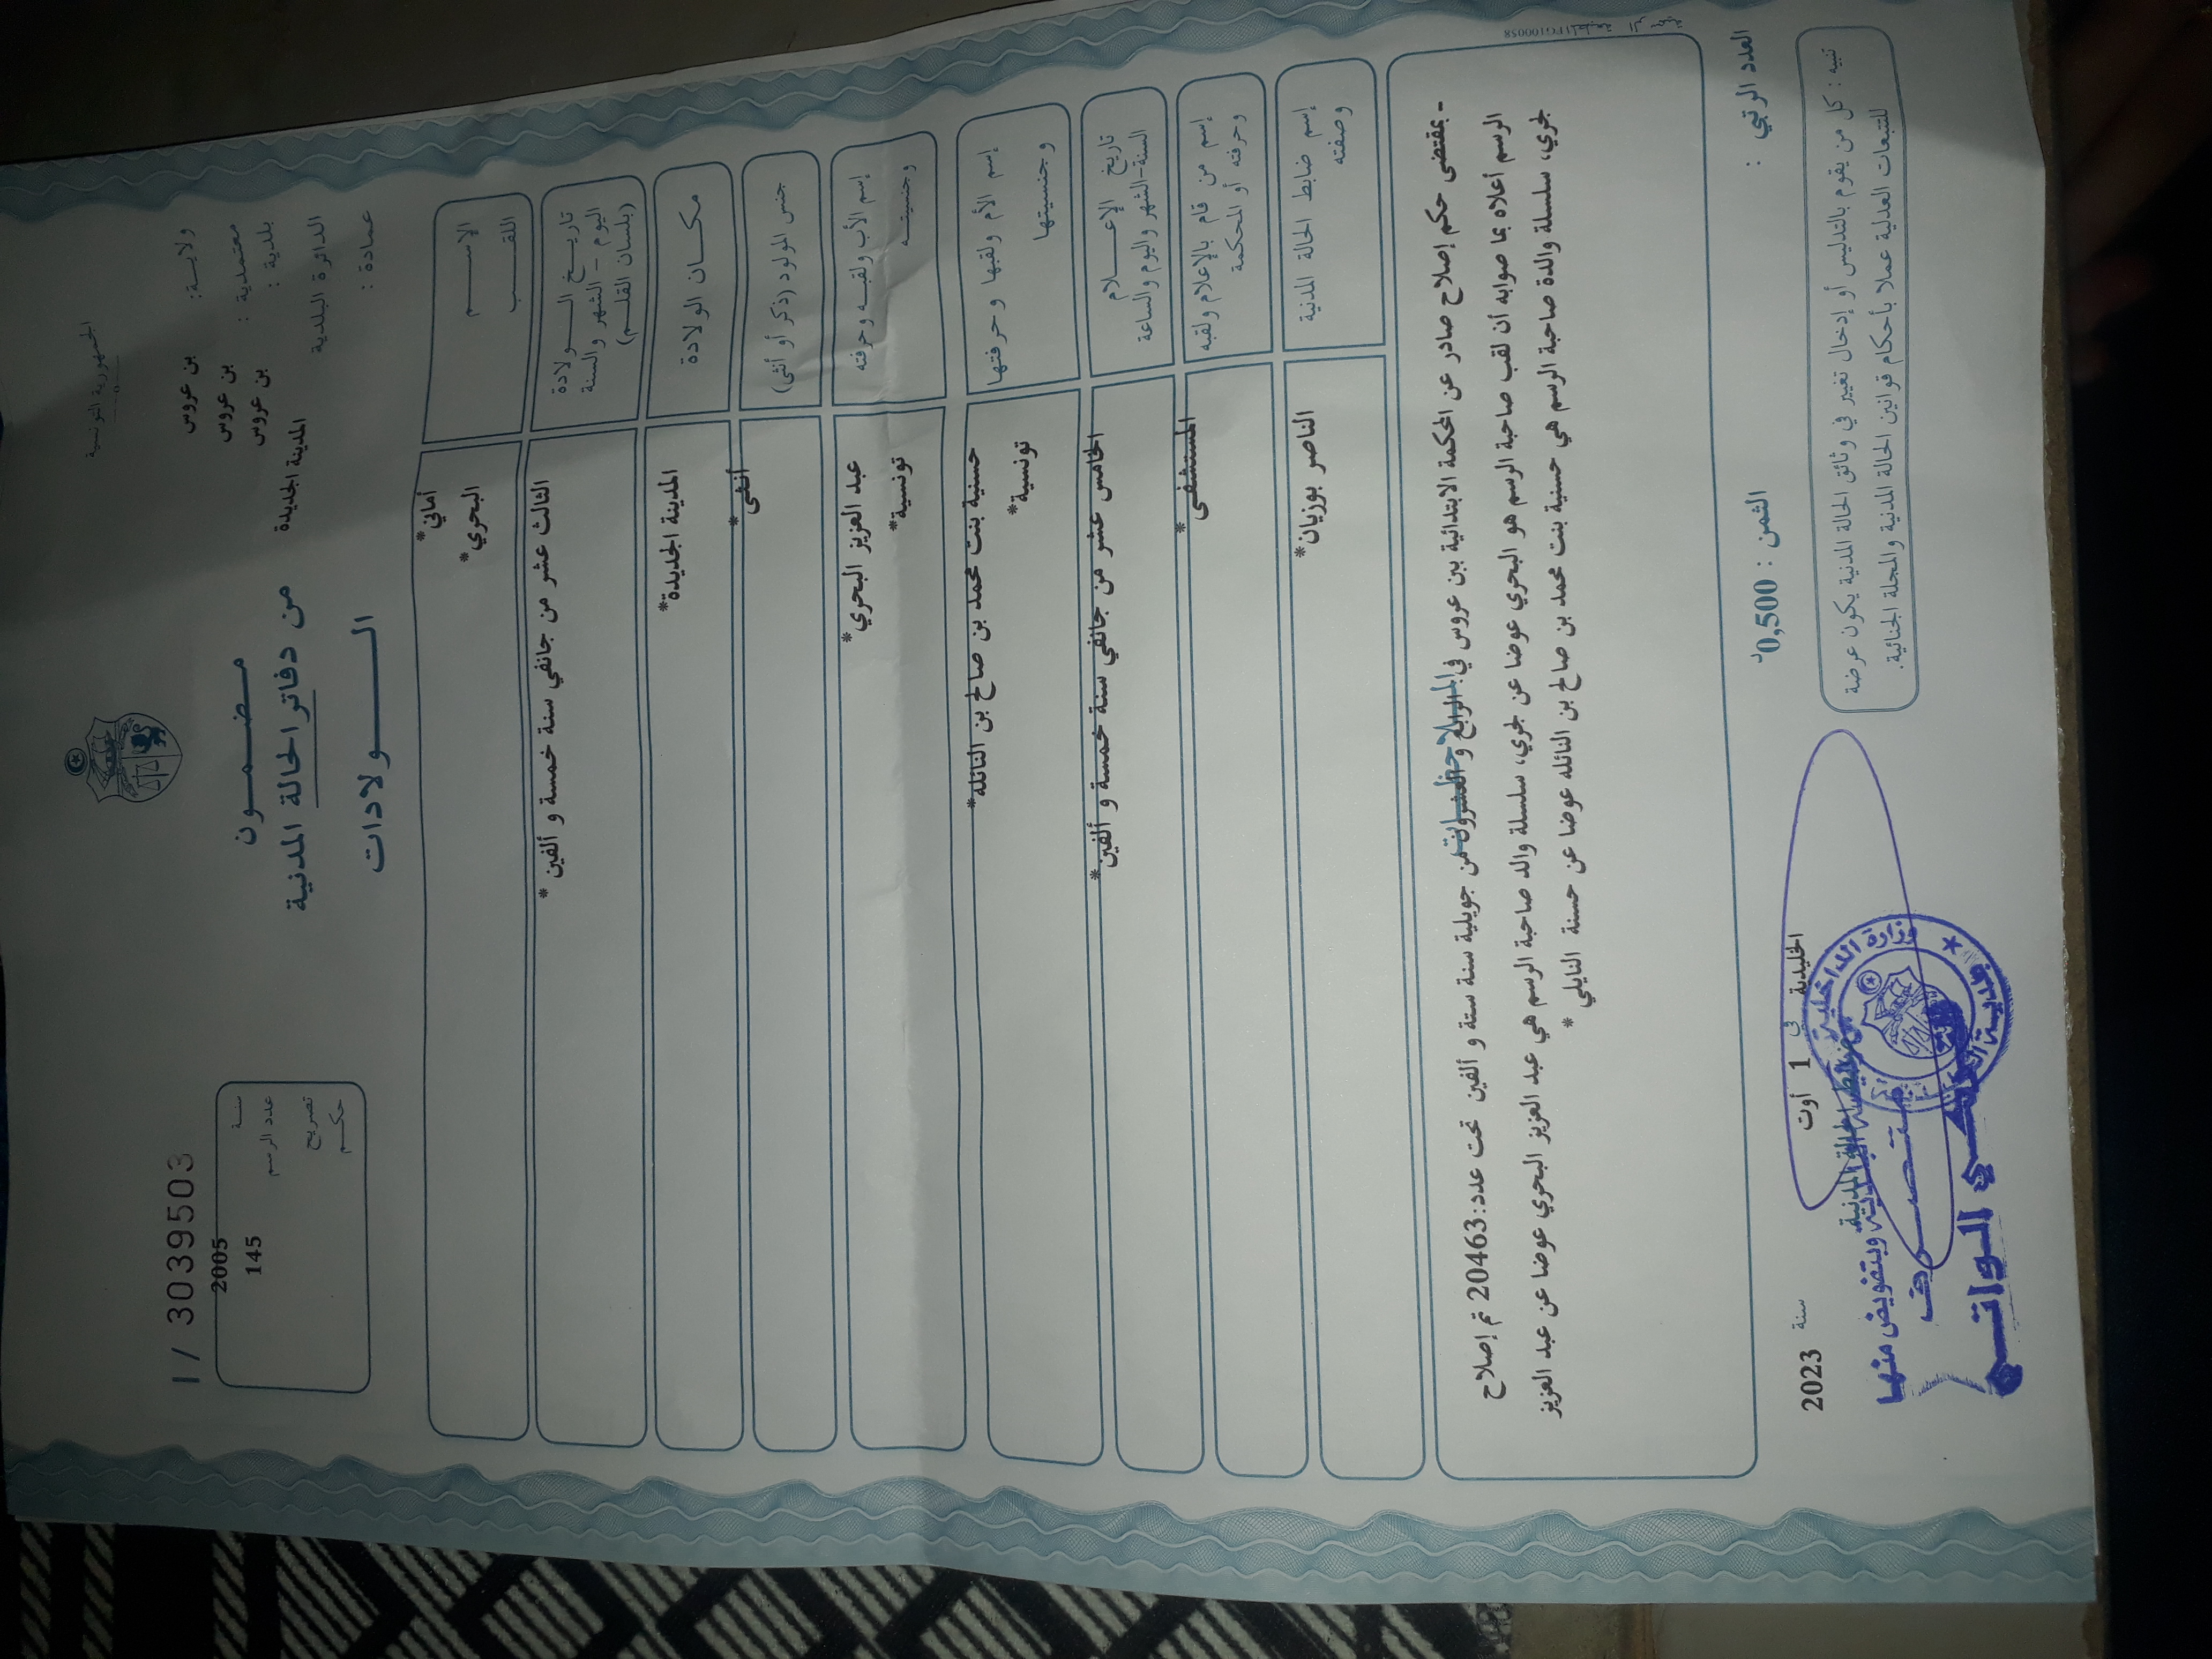 الجمهورية التونسية
1/ 30399503
ولاية: بن عروس
معتمدية : بن عروس
بلدية : بن عروس
الدائرة البلدية المدينة الجديدة
عمادة :
مضمون
من دفاتر الحالة المدنية
الولادات
سنة 2005
عدد الرسم 145
تصريح
حكم
الاسم أماني*
اللقب البحري*
تاريخ الولادة
اليوم - الشهر والسنة
(بلسان القلم)
الثالث عشر من جانفي سنة خمسة و ألفين *
مكان الولادة المدينة الجديدة*
جنس المولود (ذكر أو أنثى) أنثى*
إسم الأب ولقبه وحرفته عبد العزيز البحري*
وجنسيته تونسية*
إسم الأم ولقبها وحرفتها حسنية بنت محمد بن صالح بن النائله*
وجنسيتها تونسية*
تاريخ الإعلام
السنة-الشهر واليوم والساعة
الخامس عشر من جانفي سنة خمسة و ألفين*
إسم من قام بالإعلام ولقبه
وحرفته أو المحكمة
المستشفى*
إسم ضابط الحالة المدنية الناصر بوزيان*
وصفته
- بمقتضى حكم إصلاح صادر عن المحكمة الابتدائية ببن عروس في الرابع و العشرون من جويلية سنة ستة و ألفين تحت عدد:20463 تم إصلاح
الرسم أعلاه بما صوابه أن لقب صاحبة الرسم هو البحري عوضا عن لجري، سلسلة والد صاحبة الرسم هي عبد العزيز البحري عوضا عن عبد العزيز
لجري، سلسلة والدة صاحبة الرسم هي حسنية بنت محمد بن صالح بن النائله عوضا عن حسنة النايلي *
العدد الرتبي :
الثمن : 0,500د
الخليدية في 1 أوت سنة 2023
تنبيه : كل من يقوم بالتدليس أو إدخال تغيير في وثائق الحالة المدنية يكون عرضة
للتتبعات العدلية عملا بأحكام قوانين الحالة المدنية والمجلة الجنائية.
وزارة الداخلية
وبتفويض منها
متصرف
الواتي